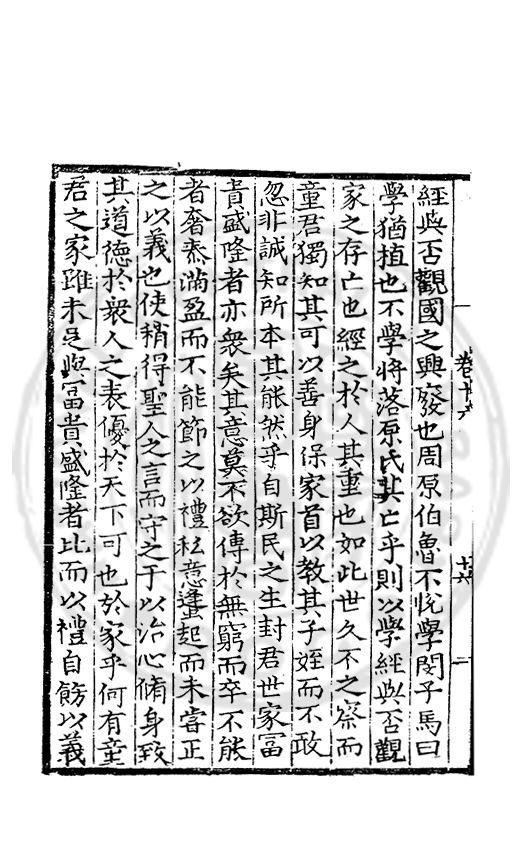 卷十六 十六
經與否觀國之興廢也周原伯魯不悅學閔子馬曰
學猶植也不學將落原氏其亡乎則以學經與否觀
家之存亡也經之於人其重也如此世久不之察而
童君獨知其可以善身保家首以教其子姪而不敢
忽非誠知所本其能然乎自斯民之生封君世家冨
貴盛隆者亦衆矣其意莫不欲傳於無窮而卒不能
者奢泰滿盈而不能節之以禮私意蠭起而未嘗正
之以義也使稍得聖人之言而守之于以治心脩身致
其道德於衆人之表優於天下可也於家乎何有童
君之家雖未足與冨貴盛隆者比而以禮自飭以義